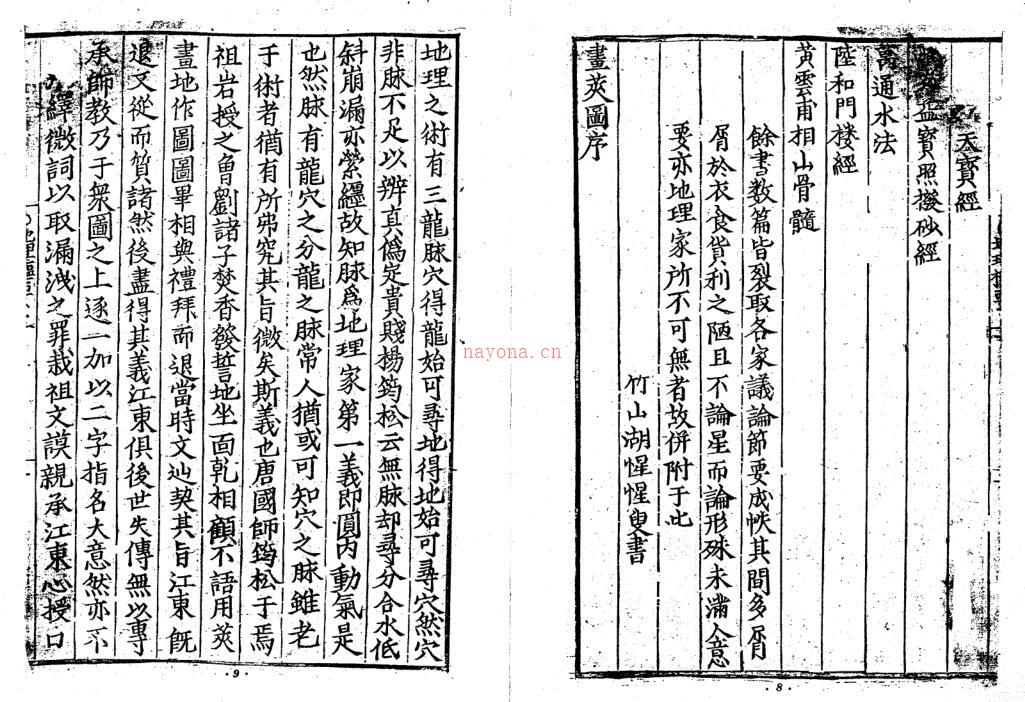 天寳經
孟寳照撥砂經
萬通水法
陸和門楼經
黃雲甫相山骨髓
餘書数篇皆裂取各家議論節要成帙其間多屑
屑於衣食貨利之陋且不論星而論形殊未滿人意
要亦地理家所不可無者故併附于此
竹山湖惺惺叟書
畫筴圖序
·8·
地理之術有三龍脉穴得龍始可尋地得地始可尋穴然穴
非脉不足以辨真僞定貴賤楊筠松云無脉却尋分合水低
斜崩漏亦縈纏故知脉爲地理家第一義即圓内動氣是
也然脉有龍穴之分龍之脉常人猶或可知穴之脉雖老
于術者猶有所弗究其旨微矣斯義也唐國師筠松于焉
祖岩授之魯劉諸子焚香發誓地坐面乾相顧不語用筴
畫地作圖圖畢相與禮拜而退當時文辿契其旨江東旣
退又從而質諸然後盡得其義江東俱後世失傳無以專
承師教乃于衆圖之上逐一加以二字指名大意然亦不
繹微詞以取漏洩之罪哉祖文謨親承江東心授口
·9·
nayona.cn